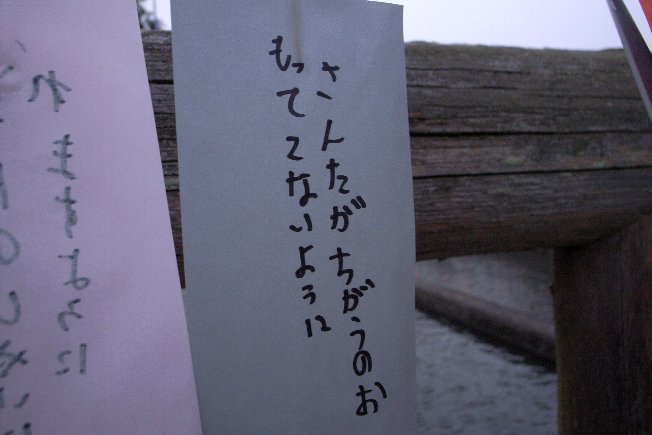 さんたがちがうのお
もってこないように
れますように